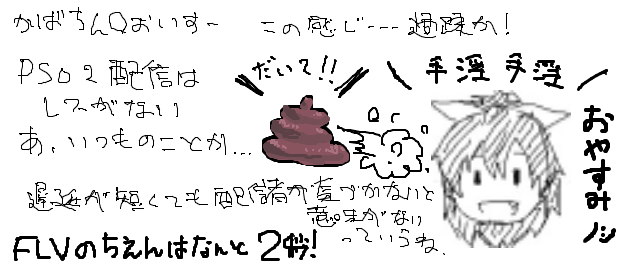 かばちんQおいすー
この感じ・・・過疎か！
PSO2配信は
レアがない
あ、いつものことか...
だいて!!
手淫 手淫
おやすみノシ
遅延が短くても配信者が気づかないと
意味がない
っていうね、
FLVのちえんはなんと2秒!